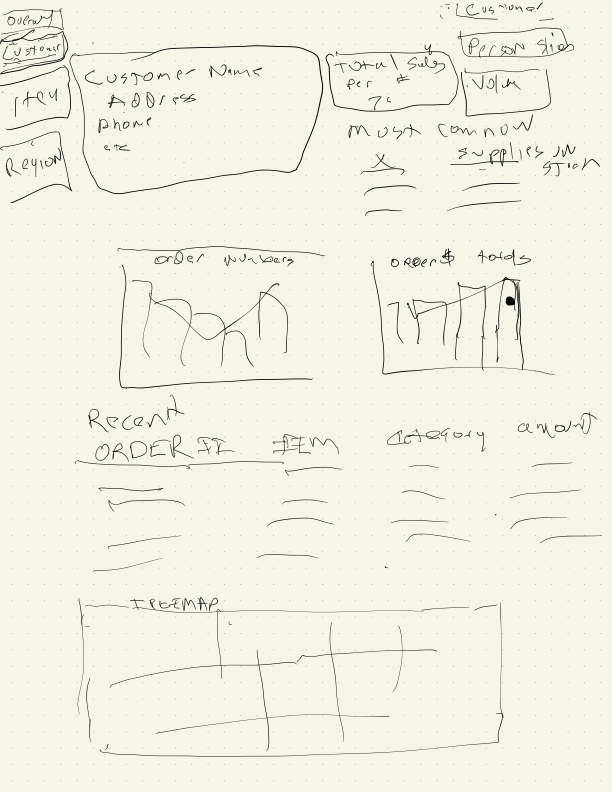 Customer
Customer
Item
Region
Customer Name
Address
Phone
etc
Total Sales
Per #
Volum
Most common
X
Supplies in
Order numbers
Order $ totals
Recent
ORDER II
ITEM
Category
amount
TREEMAP